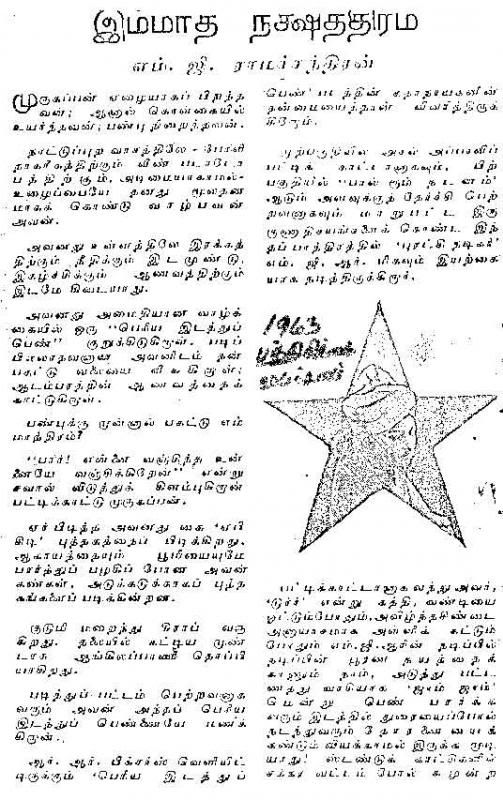 இம்மாத நக்ஷத்திரம்
எம். ஜி. ராமச்சந்திரன்
முருகப்பன் ஏழையாகப் பிறந்த
வன்; ஆனால் கொள்கையில்
உயர்ந்தவன்; பண்பு நிறைந்தவன்.
நாட்டுப்புற வாசத்திலே - போலி
நாகரீகத்திற்கும் வீண் படாடோப
த்திற்கும், அடிமையாகாமல்-
உழைப்பையே தனது மூலதன
மாகக் கொண்டு வாழ்பவன்
அவன்.
அவனது உள்ளத்திலே இரக்கத்
திற்கும் நீதிக்கும் இடமுண்டு,
இகழ்ச்சிக்கும் ஆணவத்திற்கும்
இடமே கிடையாது.
அவனது அமைதியான வாழ்க்
கையில் ஒரு "பெரிய இடத்துப்
பெண்" குறுக்கிடுகிறாள். படிப்
பில்லாதவனான அவனிடம் தன்
பகட்டு வலையை வீசுகிறாள்;
ஆடம்பரத்தின் ஆணவத்தைக்
காட்டுகிறாள்.
பண்புக்கு முன்னால் பகட்டு எம்
மாத்திரம்?
"பார்! என்னை வஞ்சித்த உன்
னையே வஞ்சிக்கிறேன்" என்று
சவால் விடுத்துக் கிளம்புகிறான்
பட்டிக்காட்டு முருகப்பன்.
ஏர்பிடித்த அவனது கை 'ஏபி
சிடி' புத்தகத்தைப் பிடிக்கிறது.
ஆகாயத்தையும் பூமியையுமே
பார்த்துப் பழகிப் போன அவன்
கண்கள், அடுக்கடுக்காகப் புத்த
கங்களைப் படிக்கின்றன.
குடுமி மறைந்து கிராப் வரு
கிறது. தலையில் கட்டிய முண்
டாசு ஆங்கிலப்பாணி தொப்பி
யாகிறது.
படித்துப் பட்டம் பெற்றவனாக
வரும் அவன் அந்தப் பெரிய
இடத்துப் பெண்ணையே மணக்
கிறான்.
ஆர். ஆர். பிக்சர்ஸ் வெளியிட்
டிருக்கும் 'பெரிய இடத்துப்
பெண்' படத்தின் கதாநாயகனின்
தன்மையைத்தான் விவரித்திருக்
கிறோம்.
முற்பகுதியில் அசல் அப்பாவிப்
பட்டிக் காட்டானாகவும், பிற்
பகுதியில் "பால் ரூம் நடனம்"
ஆடும் அளவுக்குத் தேர்ச்சி பெற்
றவனாகவும் மாறுபட்ட இரு
குணாதிசயங்களைக் கொண்ட இந்
தப் பாத்திரத்தில் 'புரட்சி நடிகர்'
எம். ஜி. ஆர். மிகவும் இயற்கை
யாக நடித்திருக்கிறார்.
1963
பட்டிக்காட்டானாக வந்து அவர்,
'டுர்ர்' என்று கத்தி, வண்டியை
ஓட்டும்போதும், அவிழ்ந்தசிண்டை
அனாயாசமாக அள்ளிக் கட்டும்
போதும் எம்.ஜி.ஆரின் நடிப்பில்
நடிப்பின் பூரணத்வத்தைக்
காணும் நாம், அடுத்து பட்ட
ணத்து வாசியாக 'ஜாம் ஜாம்'
மென்று பெண் பார்க்க
வரும் இடத்தில் துரையைப்போல்
நடந்துவரும் தோரணையைக்
கண்டும் வியக்காமல் இருக்க முடி
யாது! ஸ்டண்டுக் காட்சிகளில்
சக்கர வட்டம் போல் சுழன்ற